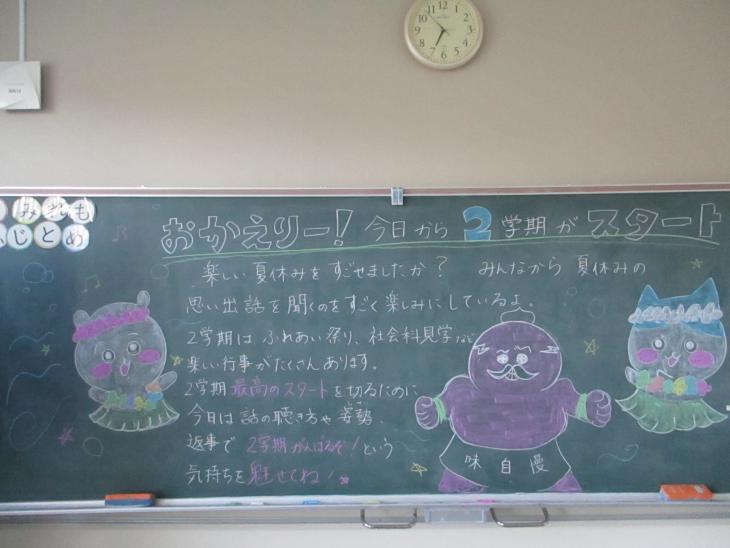 みれも
いじとめ
おかえりー！今日から2学期がスタート
楽しい夏休みをすごせましたか？ みんなから夏休みの
思い出話を聞くのをすごく楽しみにしているよ。
2学期は ふれあい祭り、社会科見学など
楽しい行事がたくさんあります。
2学期最高のスタートを切るために
今日は話の聴き方や姿勢、
返事で 2学期がんばるぞ！という
気持ちを魅せてね！
味自慢
12
1
2
3
4
5
6
7
8
9
10
11